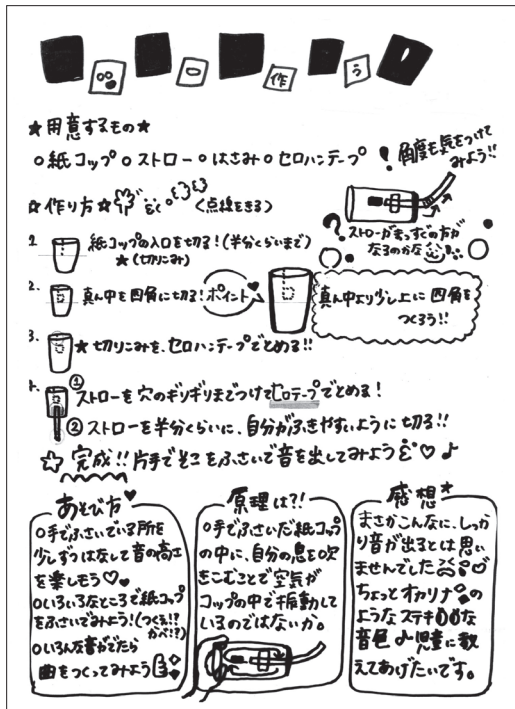 作
う
★用意するもの★
○紙コップ○ストロー○はさみ○セロハンテープ
！角度も気をつけて
みよう!!
☆作り方☆
〈点線をきる〉
？ストローがまっすぐの方が
なるのかな
1. 紙コップの入口を切る！(半分くらいまで)
★(切りこみ)
2. 真ん中を四角に切る！
ポイント
真ん中より少し上に四角を
つくろう!!
3. ★切りこみを、セロハンテープでとめる!!
4. ①ストローを穴のギリギリまでつけてセロテープでとめる！
②ストローを半分くらいに、自分がふきやすいように切る!!
☆完成!!片手でそこをふさいで音を出してみよう♡♪
あそび方
○手でふさいでいる所を
少しずつはなして音の高さ
を楽しもう♡♡
○いろいろなところで紙コップ
をふさいでみよう！(つくえ!?
かべ!?)
○いろんな音がでたら
曲をつくってみよう
原理は?!
○手でふさいだ紙コップ
の中に、自分の息を吹
きこむことで空気が
コップの中で振動して
いるのではないか。
感想
まさかこんなに、しっか
り音が出るとは思い
ませんでした
ちょっとオカリナ
のようなステキな
音色♪児童に教
えてあげたいです。